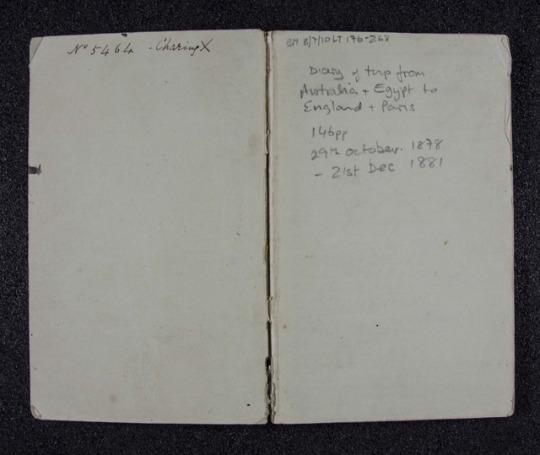 No 5464 - Charing X
8/7/10 LT 176-268
Diary of trip from
Australia + Egypt to
England + Paris
146pp
29th October. 1878
- 21st Dec 1881